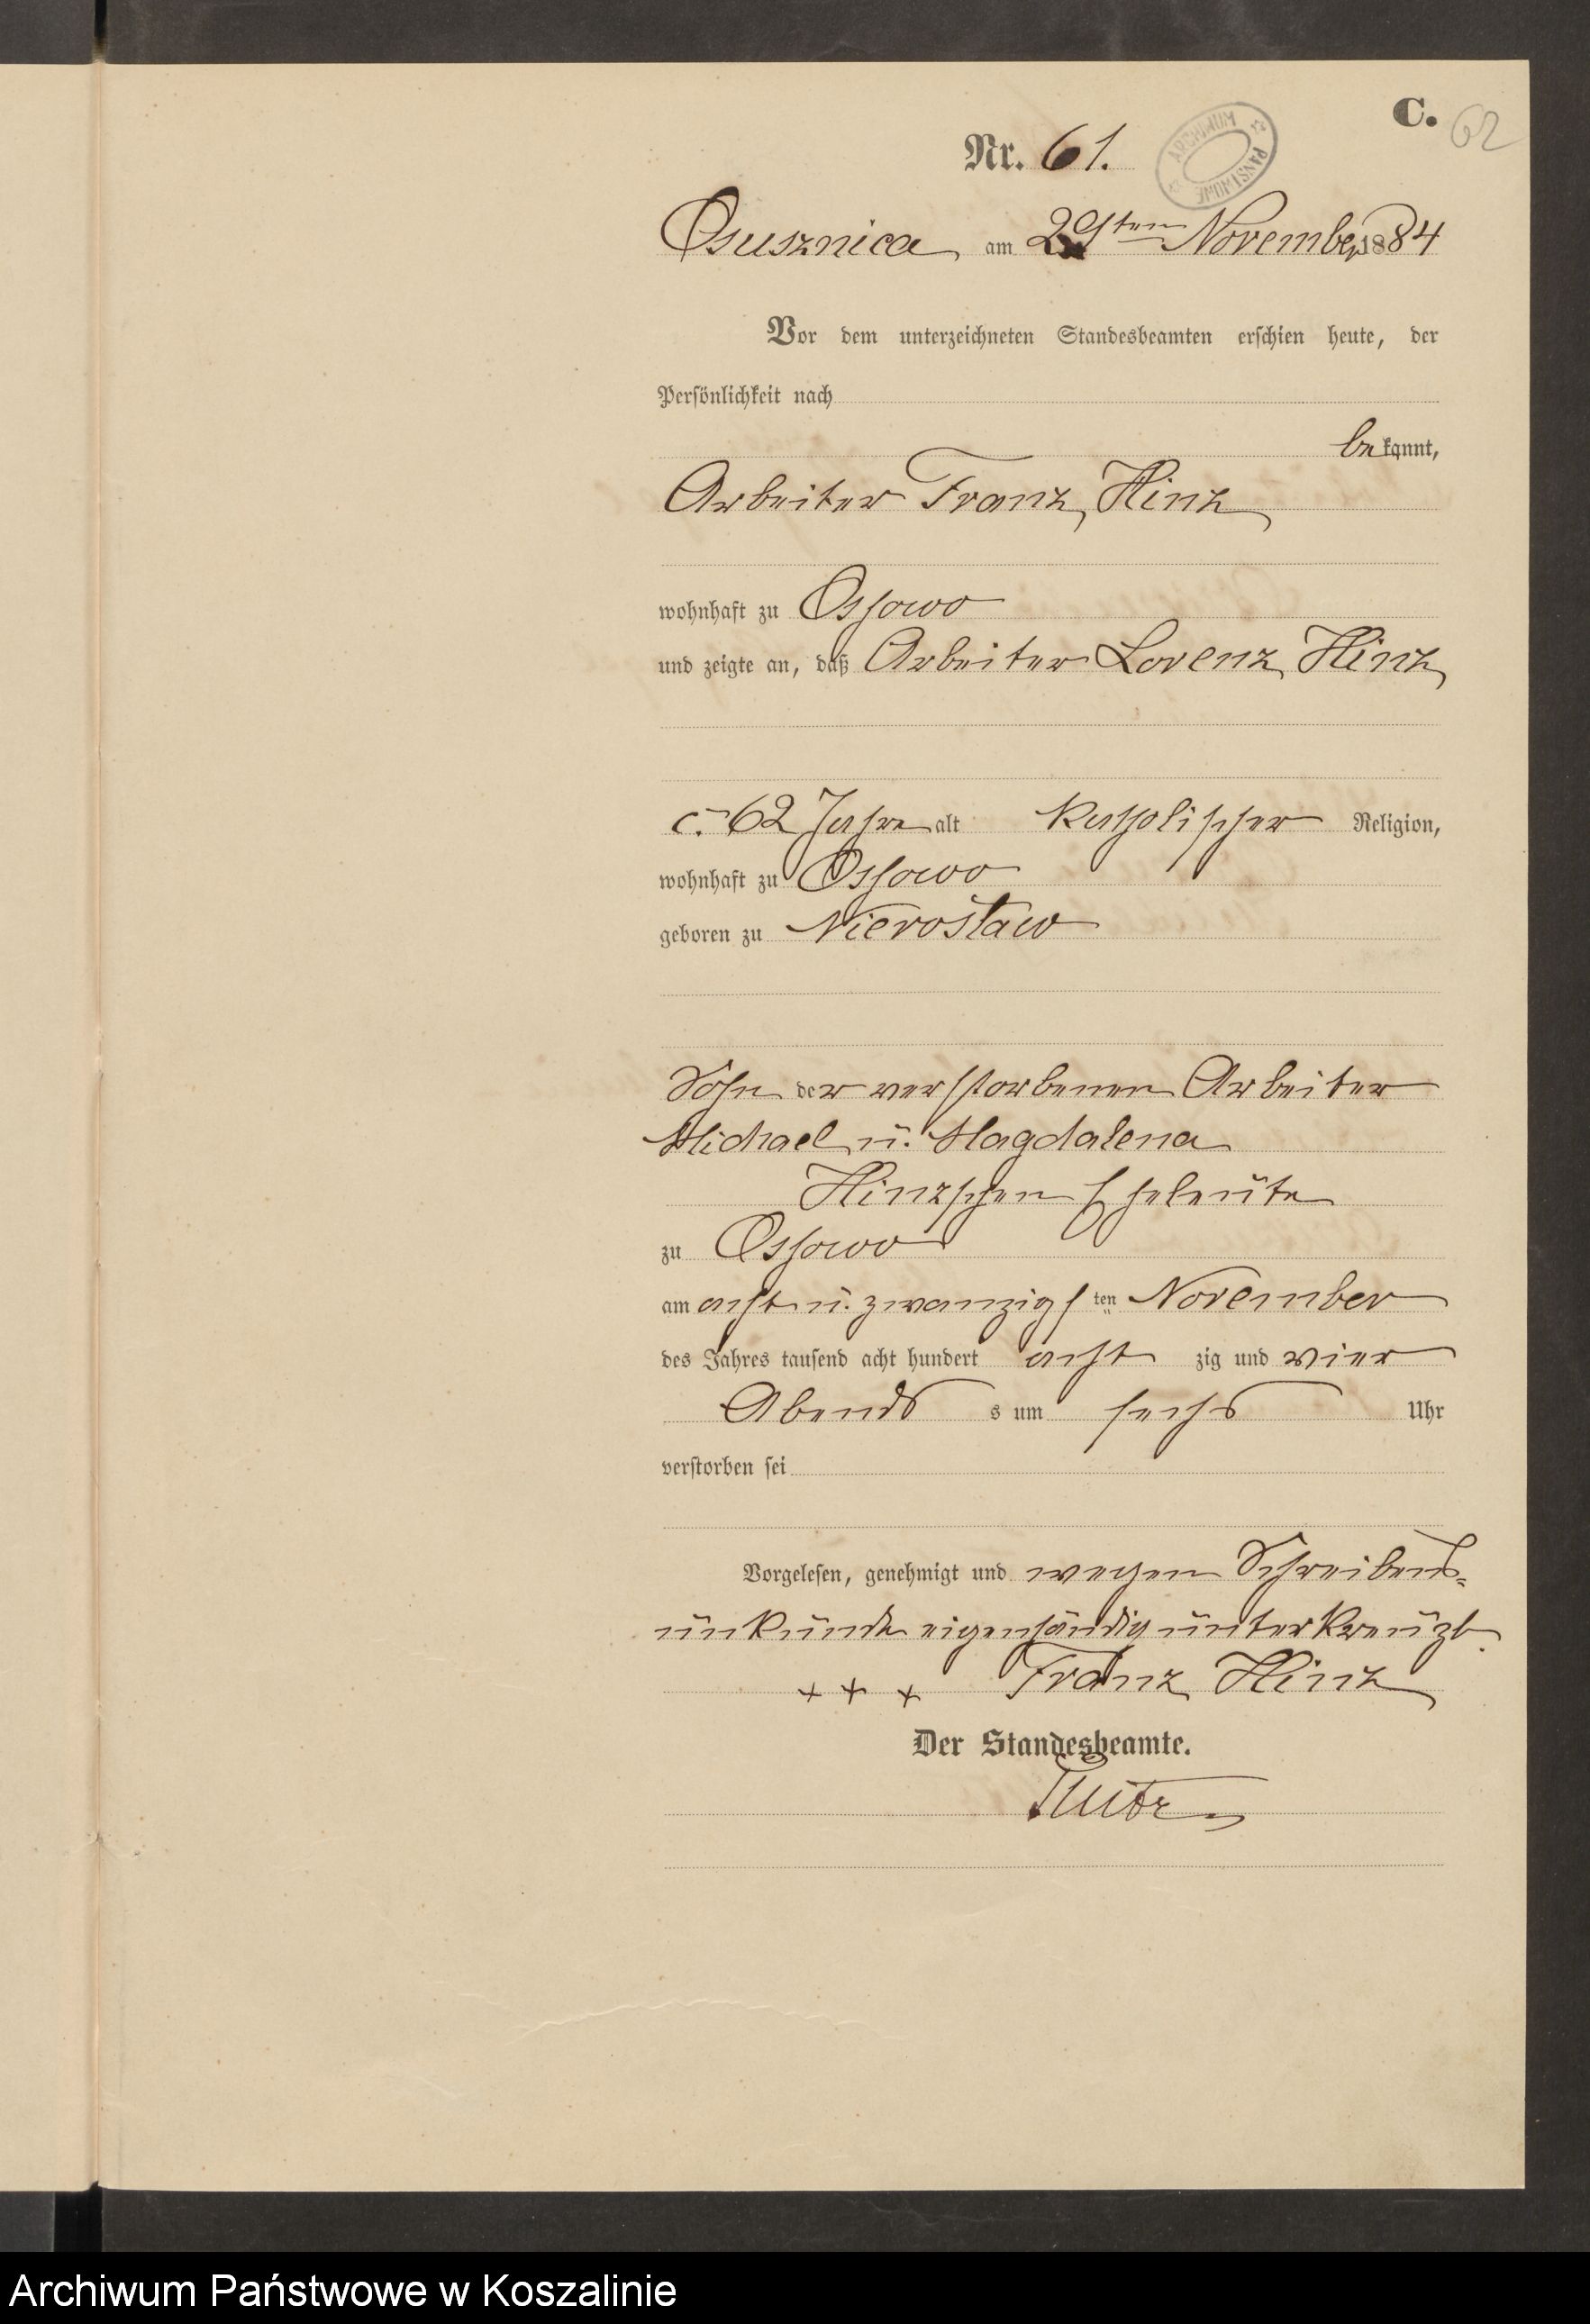 C.
62
Nr. 61.
ARCHIWUM PAŃSTWOWE
Osusznica am 29ten November 1884
Vor dem unterzeichneten Standesbeamten erschien heute, der
Persönlichkeit nach
bekannt,
Arbeiter Franz Hinz
wohnhaft zu Ossowo
und zeigte an, daß Arbeiter Lorenz Hinz
c. 62 Jahre alt katholischer Religion,
wohnhaft zu Ossowo
geboren zu Nierostaw
Sohn der verstorbenen Arbeiter
Michael u. Magdalena
Hinzschen Eheleute
zu Ossowo
am acht u. zwanzigsten November
des Jahres tausend acht hundert acht zig und vier
Abends s um sechs Uhr
verstorben sei
Vorgelesen, genehmigt und wegen Schreibens-
unkunde eigenhändig unterkreuzt.
+ + + Franz Hinz
Der Standesbeamte.
Archiwum Państwowe w Koszalinie